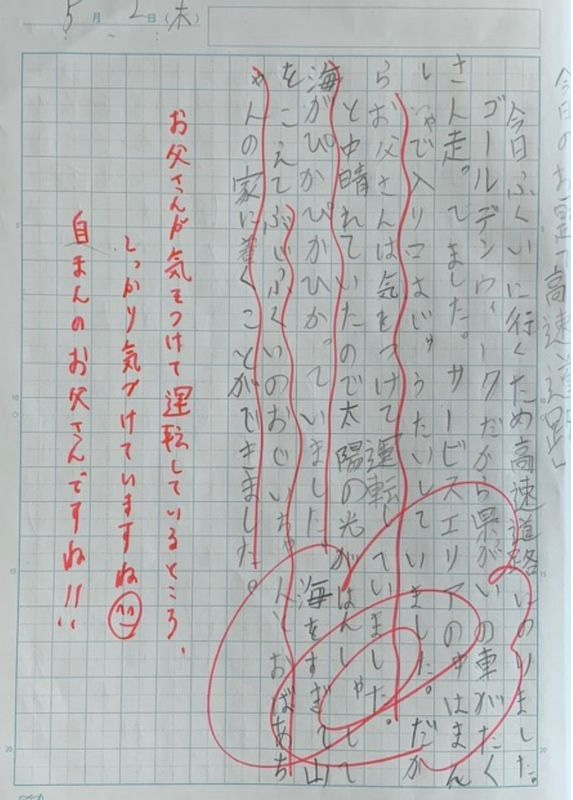 5月2日(木)
今日のお題「高速道路」
今日ふくいに行くため高速道路にのりました。
ゴールデンウィークだから県がいの車がたく
さん走ってました。サービスエリアの中はまん
しゃで入り口はじゅうたいしていました。だか
らお父さんは気をつけて運転していました。
と中晴れていたので太陽の光がはんしゃして
海がぴかぴかひかっていました。海をすぎて山
をこえてぶじふくいのおじいちゃんとおばあち
ゃんの家に着くことができました。
お父さんが気をつけて運転しているところ、
しっかり気づけていますね
自まんのお父さんですね!!